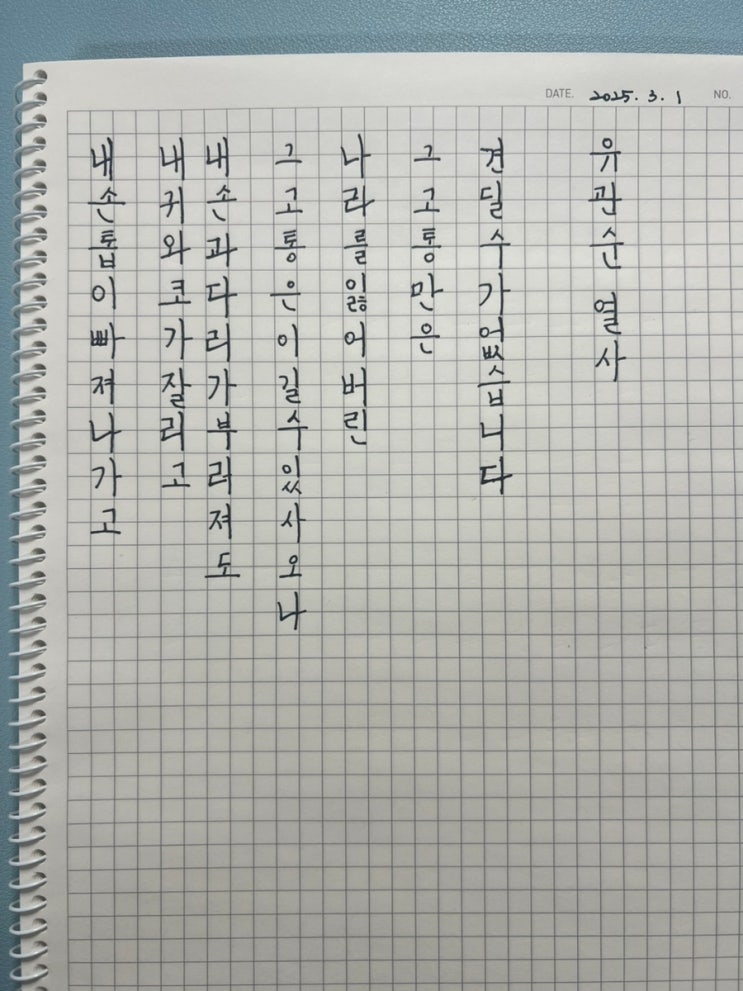 DATE. 2025. 3. 1 NO.
내손톱이빠져나가고
내귀와코가잘리고
내손과다리가부러져도
그고통은이길수있사오나
나라를잃어버린
그고통만은
견딜수가없습니다
유관순 열사